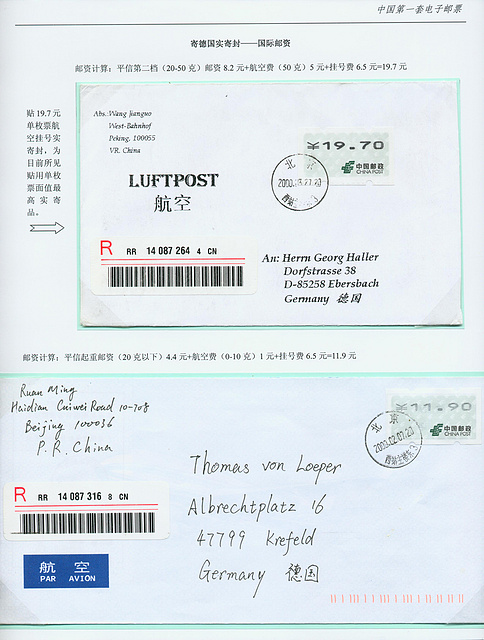 中国第一套电子邮票
寄德国实寄封——国际邮资
邮资计算：平信第二档（20-50 克）邮资 8.2 元+航空费（50 克）5 元+挂号费 6.5 元=19.7 元
贴 19.7 元
单枚票航
空挂号实
寄封，为
目前所见
贴用单枚
票面值最
高实寄
品。
Abs.:Wang jianguo
West-Bahnhof
Peking, 100055
VR. China
¥19.70
中国邮政
CHINA POST
北 京
LUFTPOST
航空
R RR 14 087 264 4 CN
An: Herrn Georg Haller
Dorfstrasse 38
D-85258 Ebersbach
Germany 德国
邮资计算：平信起重邮资（20 克以下）4.4 元+航空费（0-10 克）1 元+挂号费 6.5 元=11.9 元
Ruan Ming
Haidian Cuiwei Road 10-708
Beijing 100036
P.R. China
¥11.90
中国邮政
CHINA POST
北 京
Thomas von Loeper
Albrechtplatz 16
47799 Krefeld
Germany 德国
R RR 14 087 316 8 CN
航 空
PAR AVION